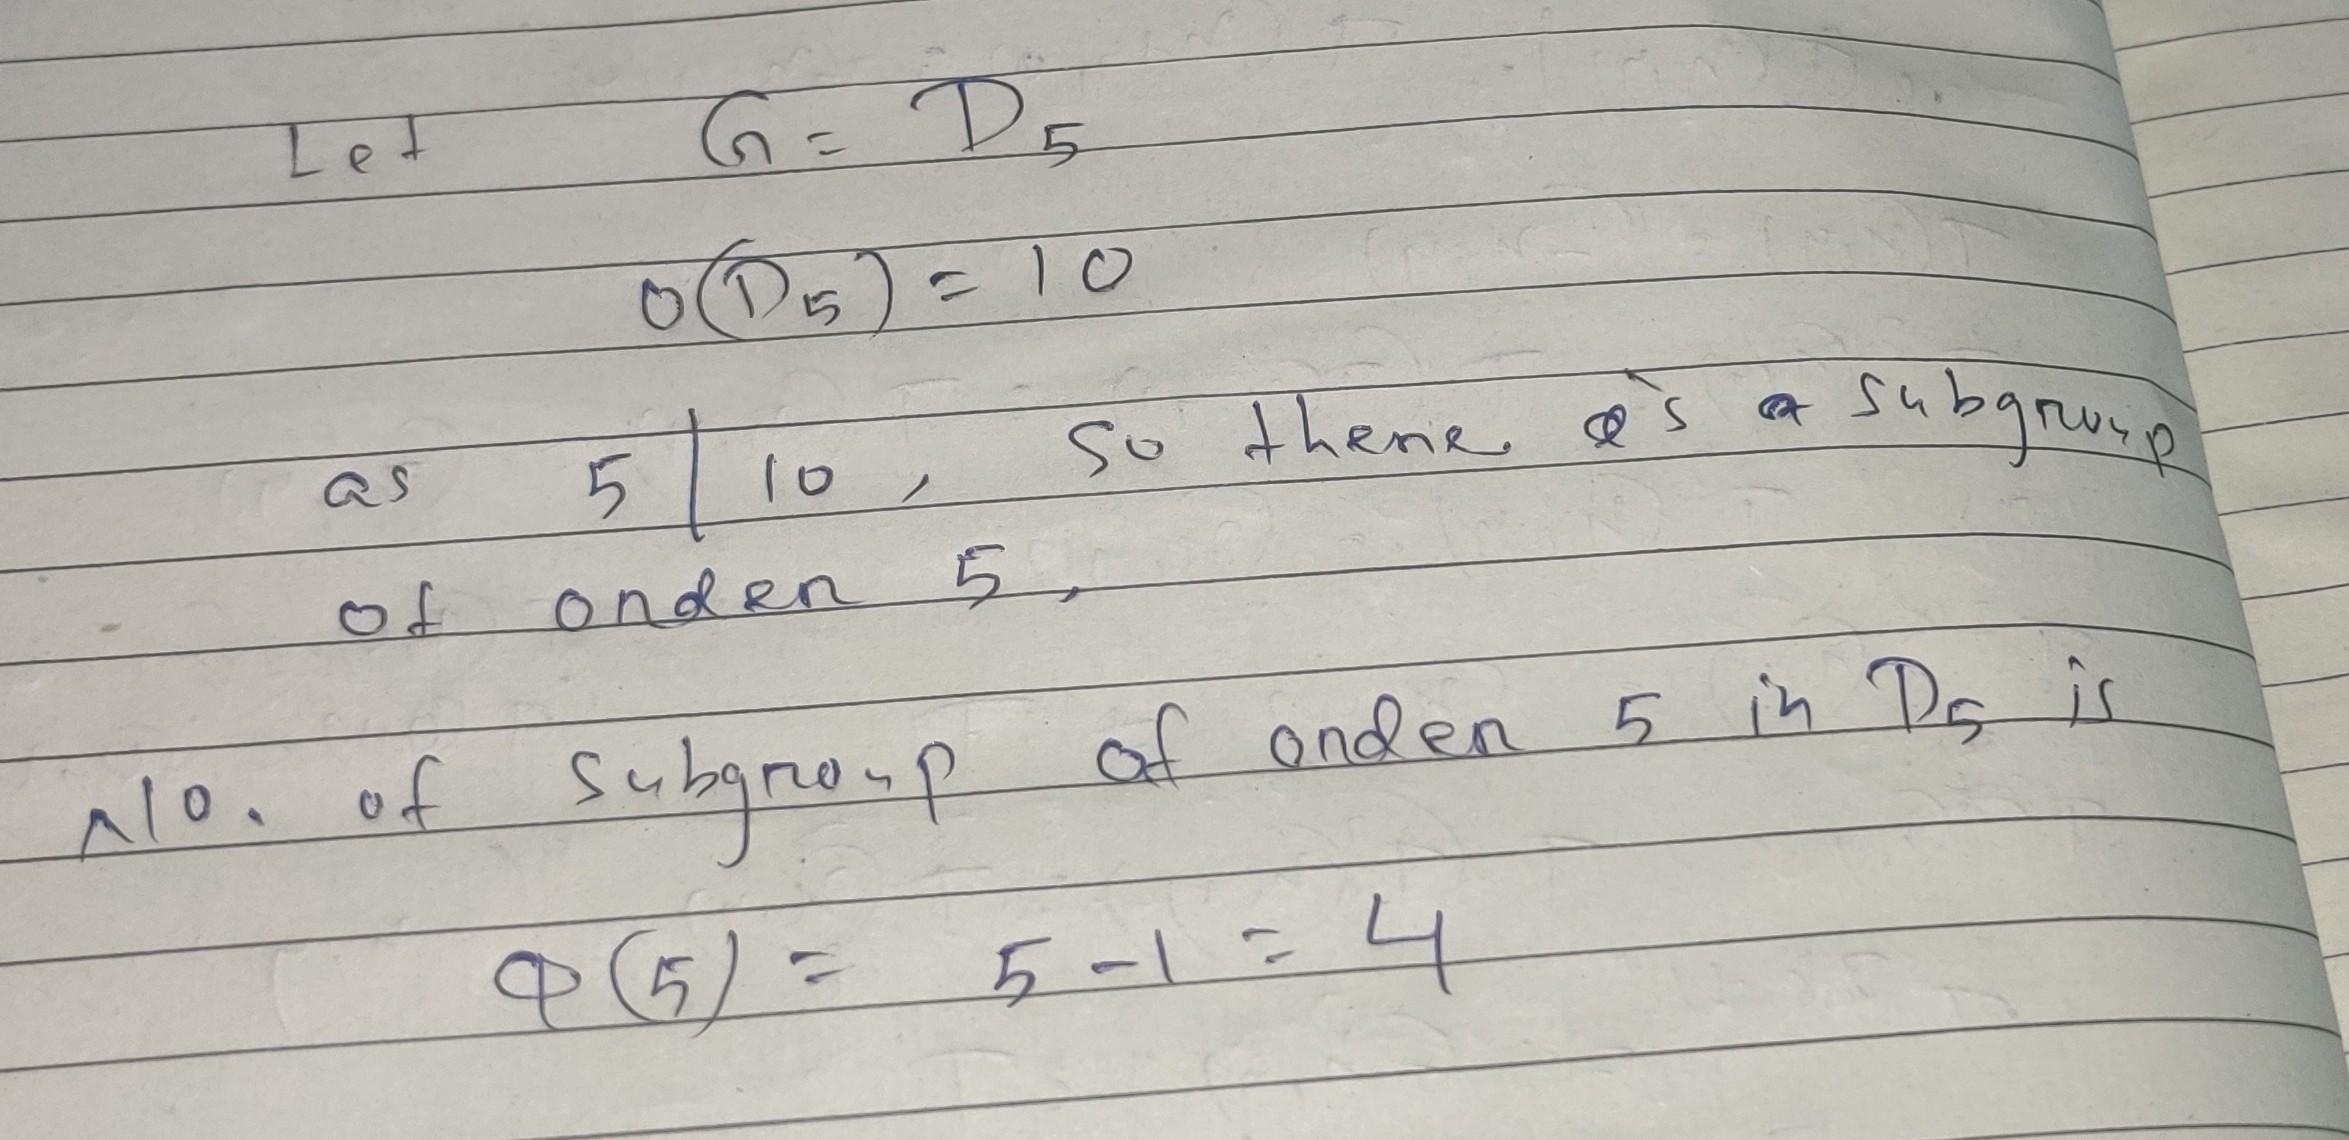 Let G = D5
O(D5) = 10
as 5 | 10, so there is a subgroup
of order 5,
No. of subgroup of order 5 in D5 is
φ(5) = 5 - 1 = 4